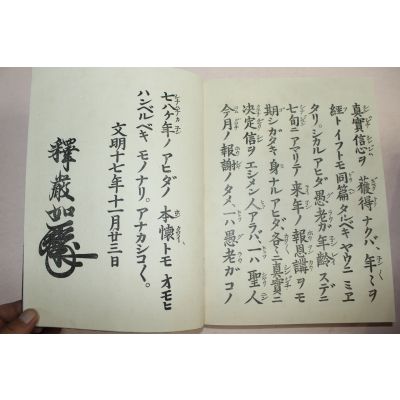 真實信心ヲ獲得ナクバ、年々ヲ
經トイフトモ同篇タルベキヤウニミエ
タリ。シカルアヒダ愚老ガ年齡スデニ
七旬ニアマリテ來年ノ報恩講ヲモ
期シガタキ身ナルアヒダ、各々ニ眞實ニ
決定信ヲエシメン人アラバ、一ハ聖人
今月ノ報謝ノタメ、一ハ愚老ガコノ
七八ケ年ノアヒダノ本懷トモオモヒ
ハンベルベキモノナリ。アナカシコ〱。
文明十七年十一月廿三日
釋嚴如